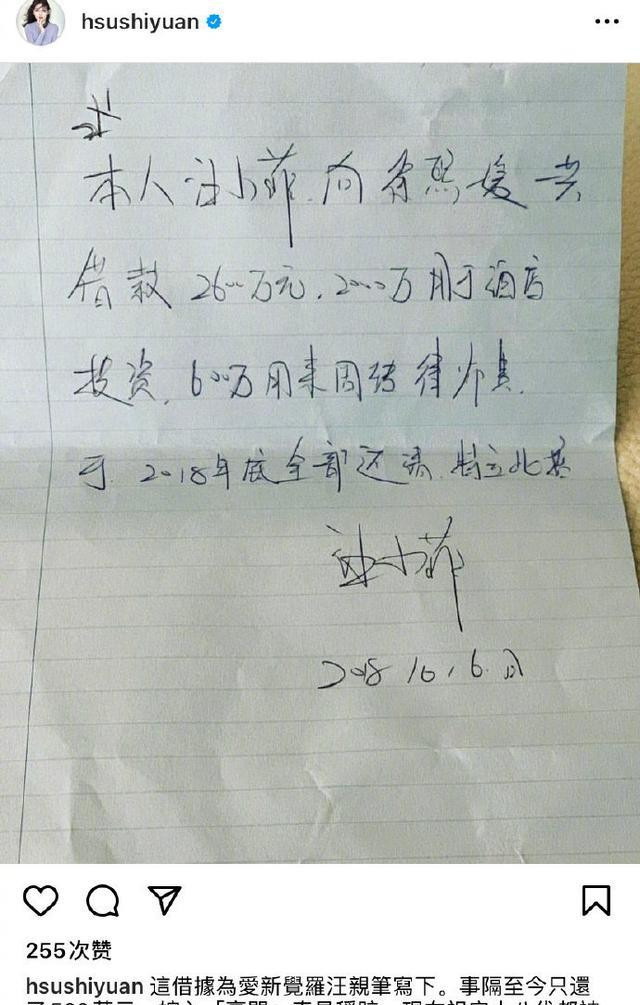 hsushiyuan
本人汪小菲.向徐熙媛共
借款2600万元.2000万用于酒店
投资.600万用来周转律师费.
于.2018年底全部还清.特立此据
汪小菲
2018.10.6.日
255次赞
hsushiyuan 這借據為愛新覺羅汪親筆寫下。事隔至今只還